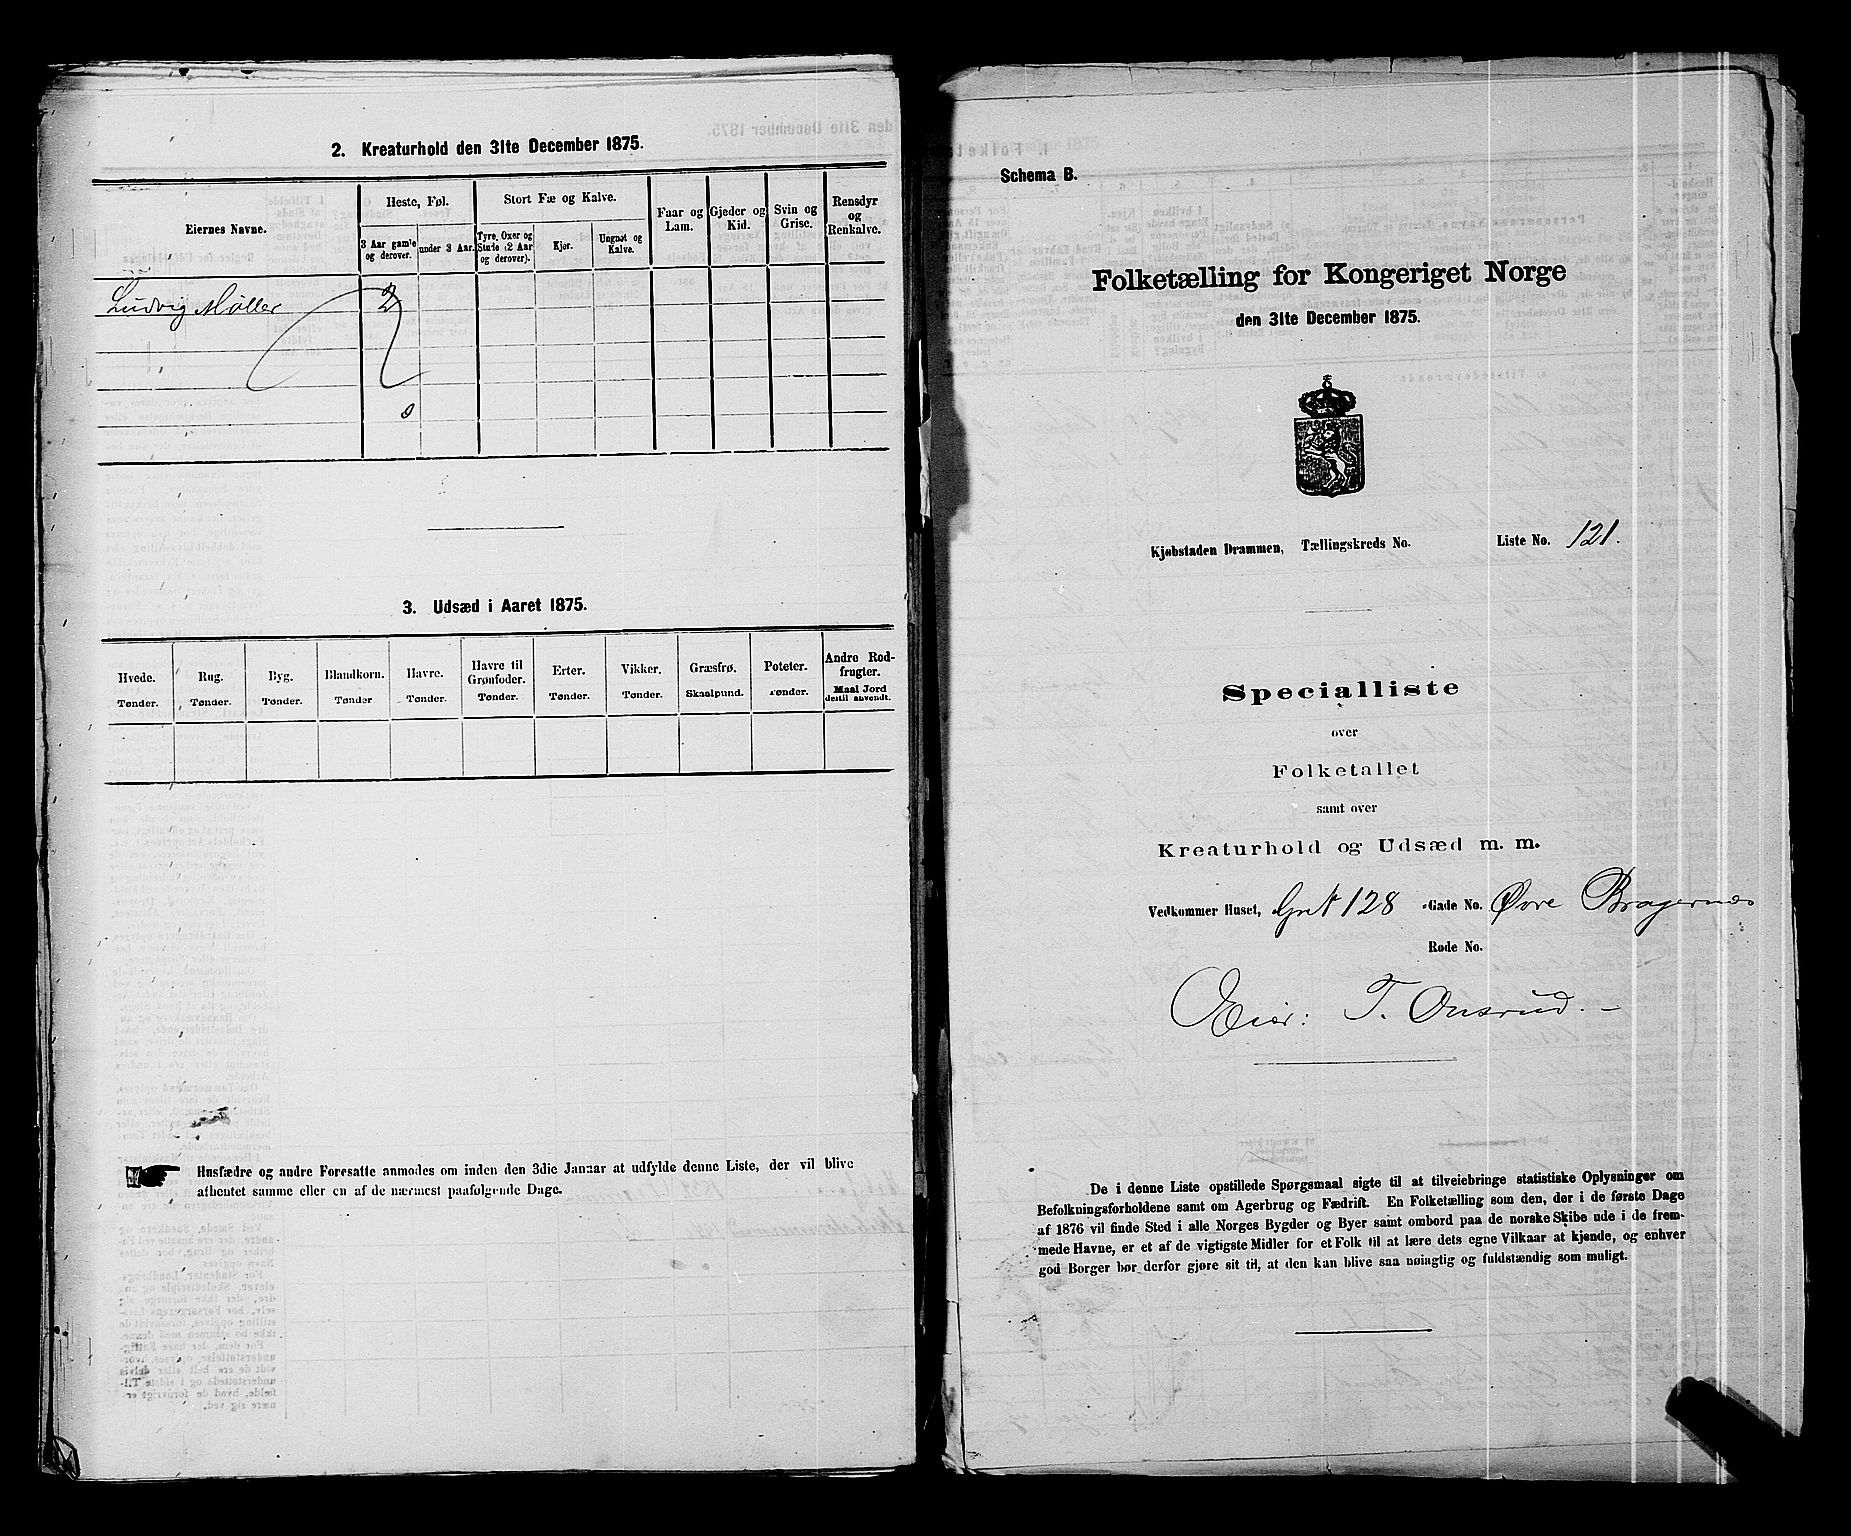 2. Kreaturhold den 31te December 1875.
Eiernes Navne.
Heste, Føl.
3 Aar gamle og derover.
under 3 Aar.
Stort Fæ og Kalve.
Tyre, Oxer og Stude (2 Aar og derover).
Kjør.
Ungnøt og Kalve.
Faar og Lam.
Gjeder og Kid.
Svin og Grise.
Rensdyr og Renkalve.
Ludvig Møller 2
3. Udsæd i Aaret 1875.
Hvede. Tønder.
Rug. Tønder.
Byg. Tønder.
Blandkorn. Tønder
Havre. Tønder.
Havre til Grønfoder. Tønder.
Erter. Tønder.
Vikker. Tønder.
Græsfrø. Skaalpund.
Poteter. Tønder.
Andre Rodfrugter. Maal Jord dertil anvendt.
Husfædre og andre Foresatte anmodes om inden den 3die Januar at udfylde denne Liste, der vil blive
afhentet samme eller en af de nærmest paafølgende Dage.
Schema B.
Folketælling for Kongeriget Norge
den 31te December 1875.
Kjøbstaden Drammen, Tællingskreds No. Liste No. 121.
Specialliste
over
Folketallet
samt over
Kreaturhold og Udsæd m. m.
Vedkommer Huset, 128 Gade No. Øvre Bragernes
Rode No.
Eier: T. Onsrud.
De i denne Liste opstillede Spørgsmaal sigte til at tilveiebringe statistiske Oplysninger om
Befolkningsforholdene samt om Agerbrug og Fædrift. En Folketælling som den, der i de første Dage
af 1876 vil finde Sted i alle Norges Bygder og Byer samt ombord paa de norske Skibe ude i de frem-
mede Havne, er et af de vigtigste Midler for et Folk til at lære dets egne Vilkaar at kjende, og enhver
god Borger bør derfor gjøre sit til, at den kan blive saa nøiagtig og fuldstændig som muligt.